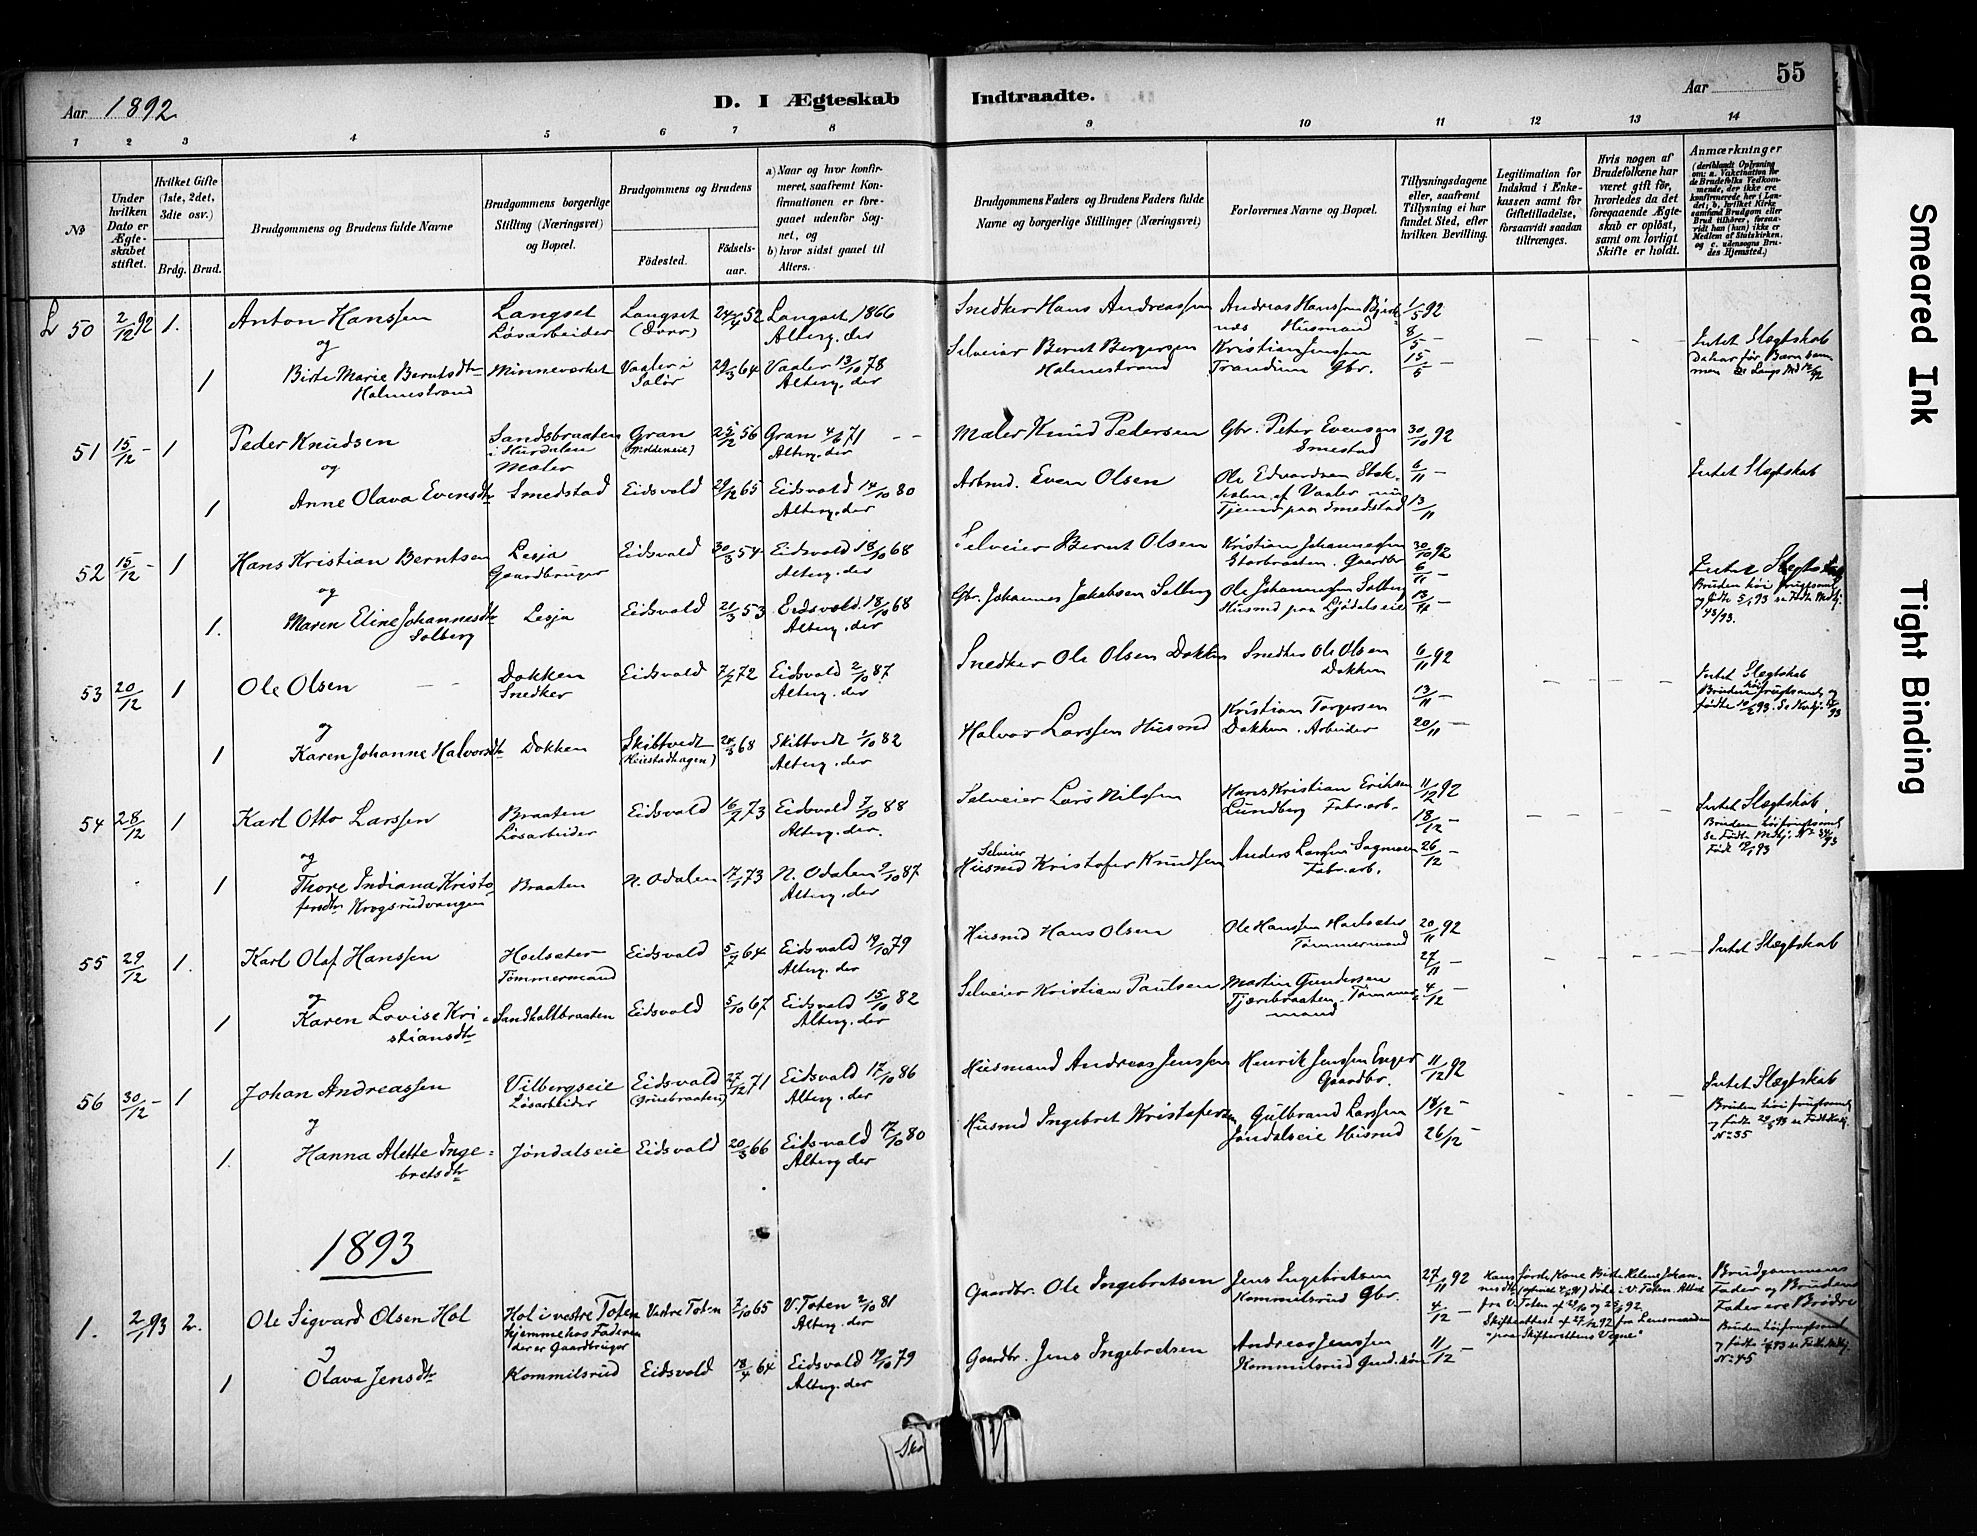 Aar 1892.
D. I Ægteskab
Indtraadte.
Aar
55
1 2 3 4 5 6 7 8
9 10 11 12 13 14
No
Under hvilken Dato er Ægteskabet stiftet.
Hvilket Gifte (1ste, 2det, 3die osv.)
Brdg. Brud.
Brudgommens og Brudens fulde Navne
Brudgommens borgerlige Stilling (Næringsvei) og Bopæl.
Brudgommens og Brudens
Fødested.
Fødselsaar.
a) Naar og hvor konfirmeret, saafremt Konfirmationen er foregaaet udenfor Sognet, og
b) hvor sidst gaaet til Alters.
Brudgommens Faders og Brudens Faders fulde Navne og borgerlige Stillinger (Næringsvei)
Forlovernes Navne og Bopæl.
Tillysningsdagene eller, saafremt Tillysning ei har fundet Sted, efter hvilken Bevilling.
Legitimation for Indskud i Enkekassen samt for Giftetilladelse, forsaavidt saadan tiltrænges.
Hvis nogen af Brudefolkene har været gift før, hvorledes da det foregaaende Ægteskab er opløst, samt om lovligt Skifte er holdt.
Anmærkninger
50 2/12 92 1.
Anton Hanssen
og
1 Birte Marie Berntsdtr
Holmestrand
Langset
Løsarbeider
Minneværket
Langset
24/4 52
Vaaler i
Solør
29/3 64
Langset 1866
Alterg. der
Vaaler 13/10 78
Alterg. der
Snedker Hans Andreassen
Selveier Bernt Bergersen
Holmestrand
Husmand
Kristian Jenssen
Trandum Gbr.
1/5 92
8/5 —
15/5 —
Intet Slægtskab
51 15/12 - 1
Peder Knudsen
og
1 Anne Olava Evensdtr
Sandsbraaten
i Hurdalen
Maler
Smedstad
Gran
25/12 56
Eidsvold
Gran 4/6 71
Alterg. der
Eidsvold 14/10 80
Alterg. der
Maler Knud Pedersen
Arbmd. Even Olsen
Gbr. Peter Evensen
Smestad
Tjener paa Smedstad
30/10 92
6/11 —
13/11
Intet Slægtskab
52 15/12 - 1
Hans Kristian Berntsen
og
1. Maren Eline Johannesdtr
Solberg
Lesja
Gaardbruger
Lesja
Eidsvold 30/3 54
Eidsvold 21/3 53
Eidsvold 18/10 68
Alterg. der
Eidsvold. 18/10 68
Alterg. der
Selveier Bernt Olsen
Gbr. Johannes Jakobsen Solberg
Kristian Johannessen
Storbraaten. Gaardbr
Ole Johannessen Solberg
30/10 92
6/11 —
13/11 —
Intet Slægtskab
53 20/12 1
Ole Olsen
og
1 Karen Johanne Halvorsdtr
Dokken
Snedker
Dokken
Eidsvold 7/7 72
Skibtvedt
68
Eidsvold 2/10 87
Alterg. der
Skibtvedt 1/10 82
Alterg. der
Snedker Ole Olsen Dokken
Halvor Larssen Husmd
Snedker Ole Olsen
Dokken
Kristian Torgersen
Dokken. Arbeider
6/11 92
13/11 —
20/11 —
Intet Slægtskab
54 28/12 1
Karl Otto Larssen
og
1 Thore Indiana Kristofersdtr Krogsrudvangen
Braaten
Løsarbeider
Braaten
Eidsvold 16/7 73
N. Odalen 17/1 73
Eidsvold 7/10 88
Alterg. der.
N. Odalen 9/10 87
Alterg. der
Selveier Lars Nilssen
Selveier
Husmd Kristofer Knudsen
Hans Kristian Eriksen
Lundberg Fabr. arb.
Fabr. arb.
11/12 92
18/12 —
26/12 —
Intet Slægtskab.
55 29/12 1.
Karl Olaf Hanssen
og
1 Karen Lovise Kristiansdtr
Hoelseter
Tømmermand
Sandholtbraaten
Eidsvold 5/7 64
Eidsvold 5/10 67
Eidsvold 19/10 79
Alterg. der
Eidsvold 15/10 82
Alterg. der
Husmd Hans Olsen
Selveier Kristian Paulsen
Ole Hanssen Hoelseter
Tømmermand
Martin Gundersen
Tjærebraaten. Tømmermand
20/11 92
27/11 —
4/12 —
Intet Slægtskab
56 30/12 - 1
Johan Andreassen
og
1. Hanna Mette Ingebretsdtr
Vilbergseie
Løsarbeider
Jøndalseie
Eidsvold
27/12 71
Eidsvold 20/3 66
Eidsvold 17/10 86
Alterg. der
Eidsvold 17/10 80
Alterg der
Husmand Andreas Jenssen
Husmd Ingebret Kristofersen
Henrik Jenssen Enger
Gaardbr.
Gulbrand Larssen
Jøndalseie Husmd
11/12 92
18/12 -
26/12 -
Intet Slægtskab
No 35
1893
1. 2/1 93 2.
Ole Sigvard Olsen Hol
og
1 Olava Jensdtr
Hol i vestre Toten
hjemme hos Faderen
der er Gaardbruger
Kommilsrud
Vestre Toten 7/10 65
Eidsvold 18/4 64
V. Toten 2/10 81
Alterg. der
Eidsvold 19/10 79
Alterg. der
Gaardbr. Ole Ingebretsen
Gaardbr. Jens Ingebretsen
Jens Ingebretsen
Kommilsrud Gbr.
Andreas Jenssen
Kommilsrud
27/11 92
4/12 —
11/12 —
"paa Skifterettens Vegne"
Brudgommens
Fader og Brudens
Fader ere Brødre
No 45
Smeared Ink
Tight Binding